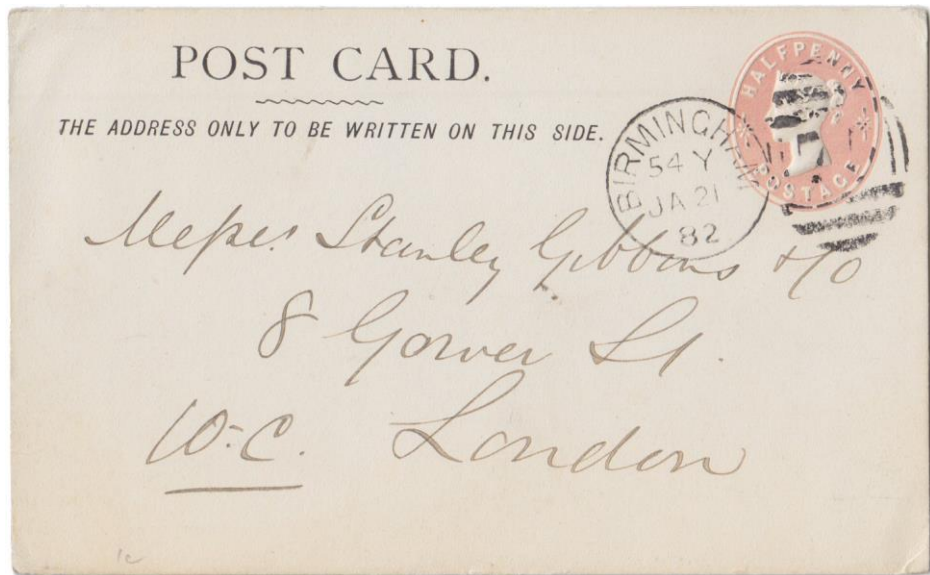 POST CARD.
THE ADDRESS ONLY TO BE WRITTEN ON THIS SIDE.
HALFPENNY
POSTAGE
BIRMINGHAM
54 Y
JA 21
82
Messrs. Stanley Gibbons & Co
8 Gower St.
W.C. London